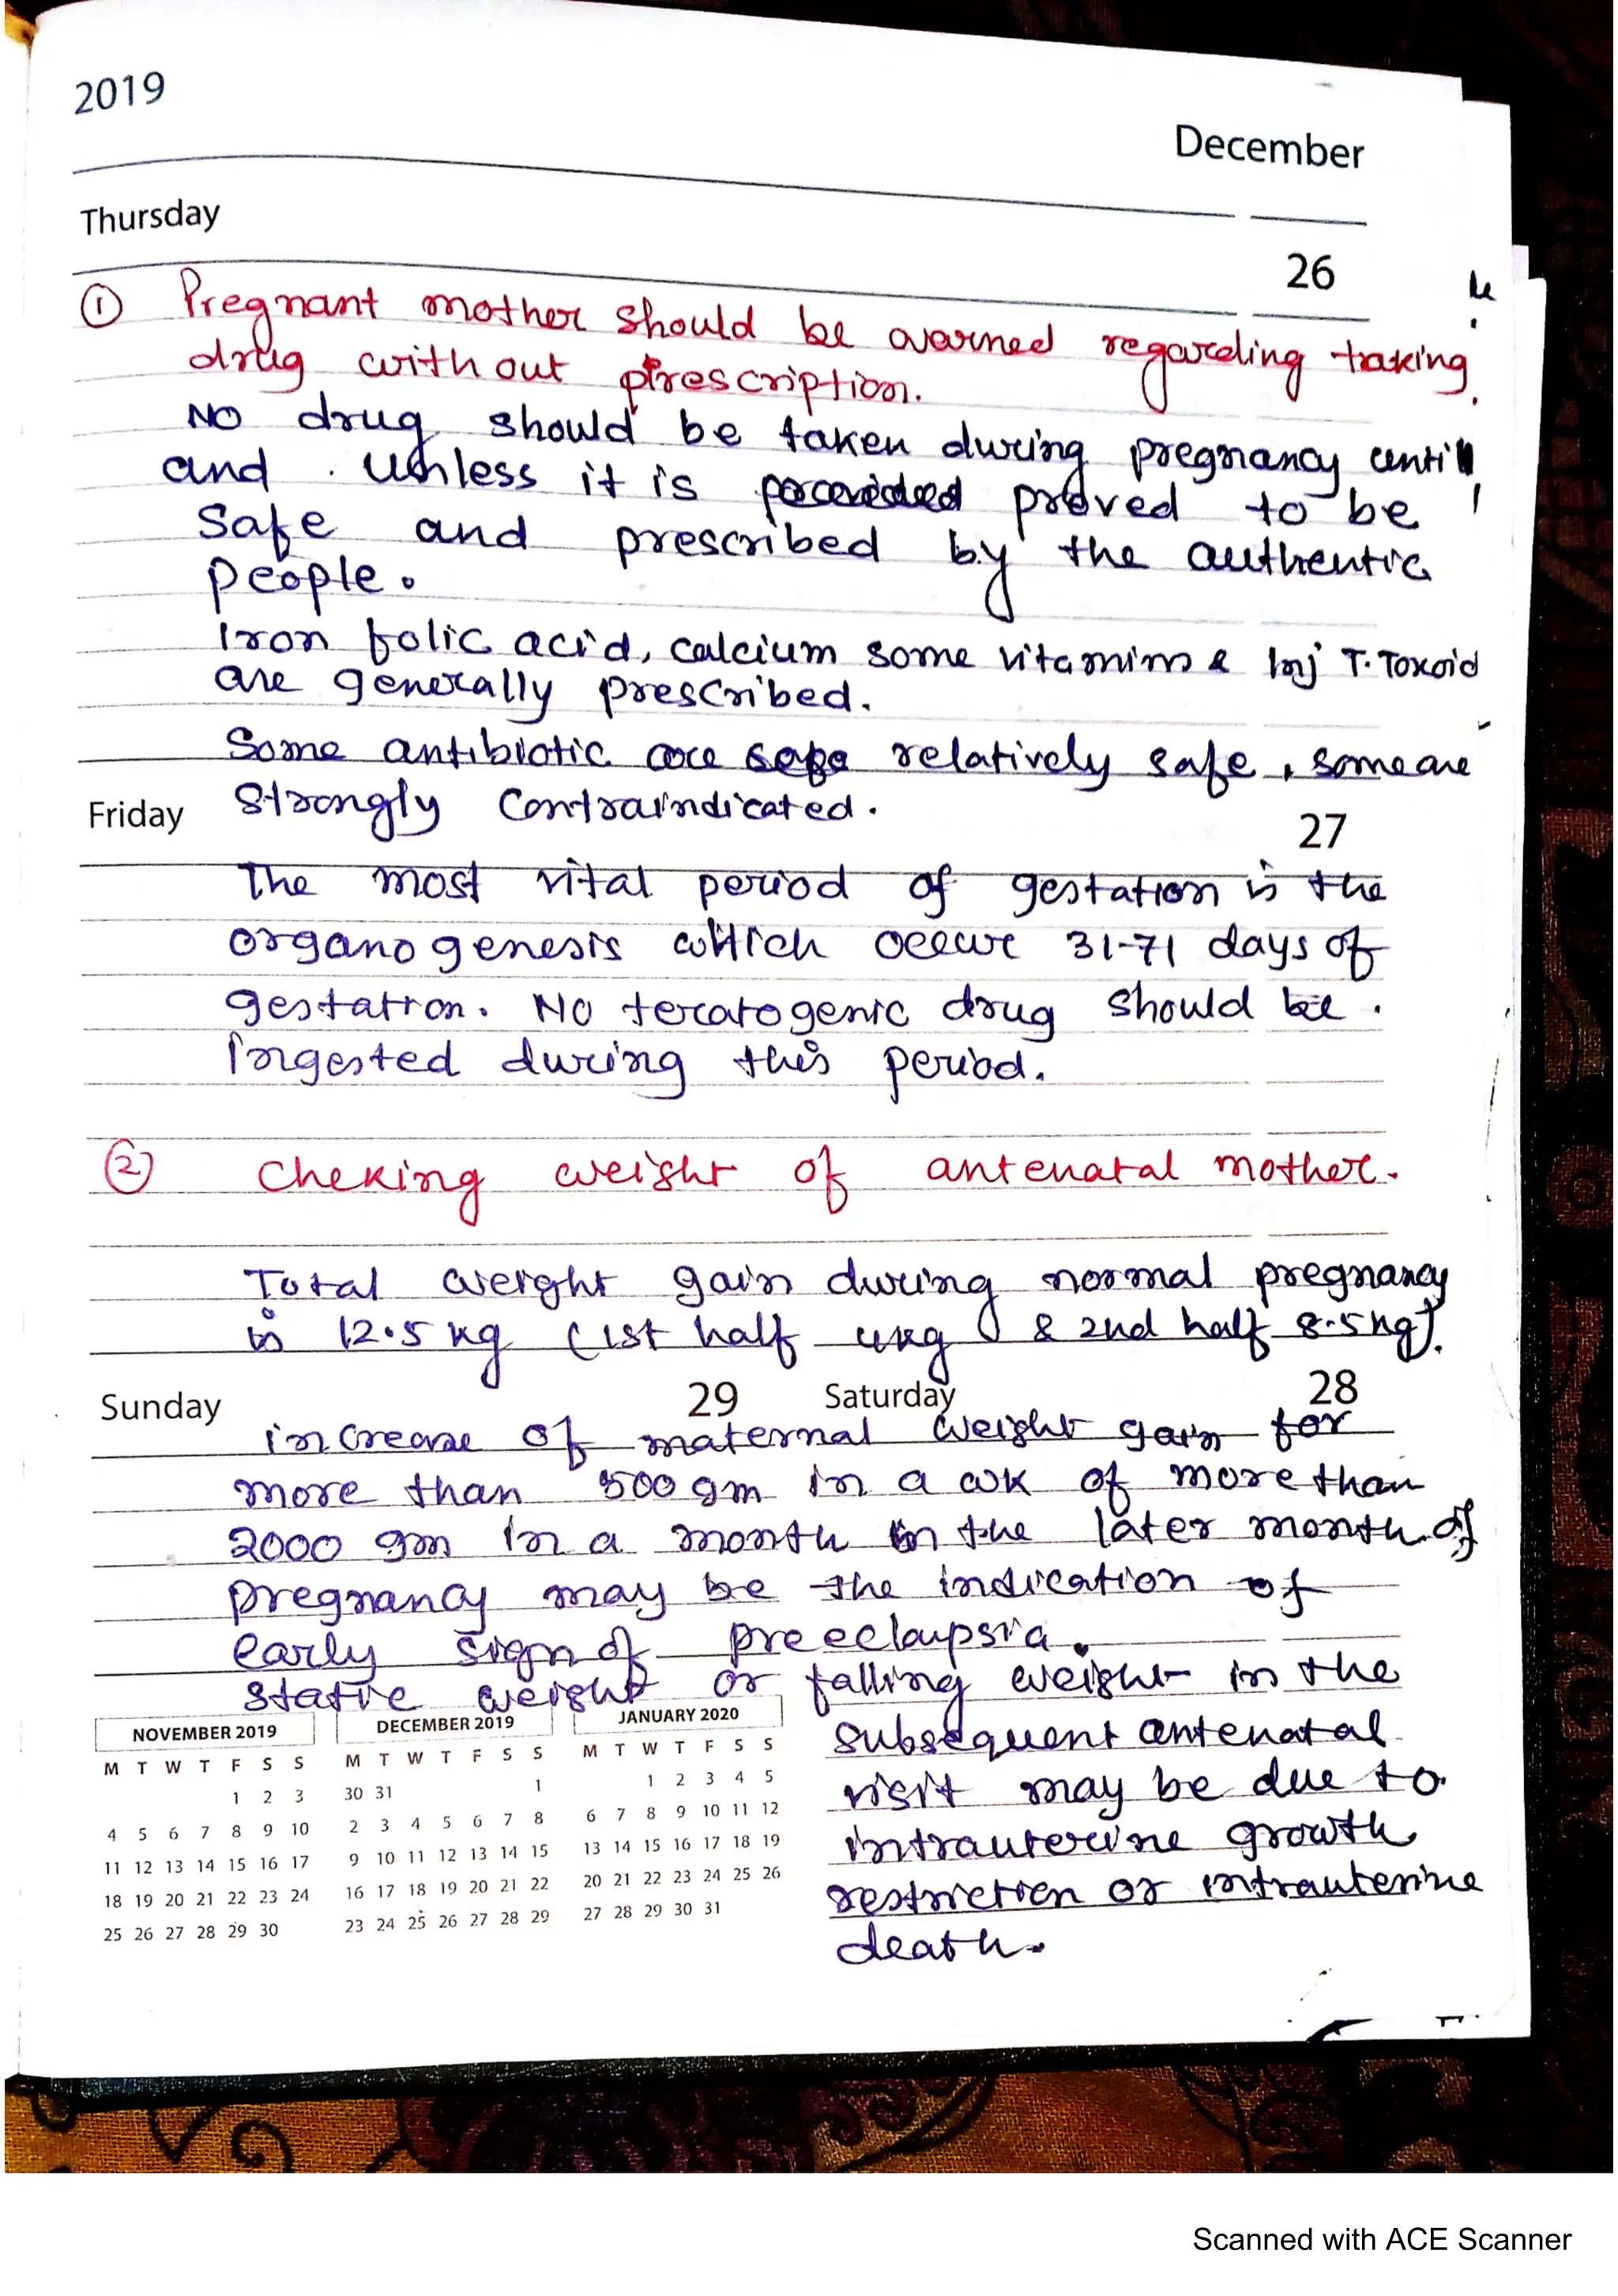 2019
December
Thursday
26
① Pregnant mother should be warned regarding taking
drug without prescription.
NO drug should be taken during pregnancy until
and unless it is proved to be
safe and prescribed by the authentic
people.
Iron folic acid, calcium some vitamins & Inj T. Toxoid
are generally prescribed.
Some antibiotic are relatively safe, some are
Friday
strongly contraindicated.
27
The most vital period of gestation is the
organogenesis which occur 31-71 days of
gestation. NO teratogenic drug should be
ingested during this period.
② Cheking weight of antenatal mother.
Total weight gain during normal pregnancy
is 12.5 kg (1st half 4kg & 2nd half 8.5kg).
Sunday 29 Saturday 28
increase of maternal weight gain for
more than 500 gm in a wk of more than
2000 gm in a month in the later month of
pregnancy may be the indication of
early sign of preeclaupsia.
static weight or falling weight in the
subsequent antenatal
visit may be due to
intrauterine growth
restriction or intrauterine
death.
NOVEMBER 2019
M T W T F S S
1 2 3
4 5 6 7 8 9 10
11 12 13 14 15 16 17
18 19 20 21 22 23 24
25 26 27 28 29 30
DECEMBER 2019
M T W T F S S
30 31 1
2 3 4 5 6 7 8
9 10 11 12 13 14 15
16 17 18 19 20 21 22
23 24 25 26 27 28 29
JANUARY 2020
M T W T F S S
1 2 3 4 5
6 7 8 9 10 11 12
13 14 15 16 17 18 19
20 21 22 23 24 25 26
27 28 29 30 31
Scanned with ACE Scanner